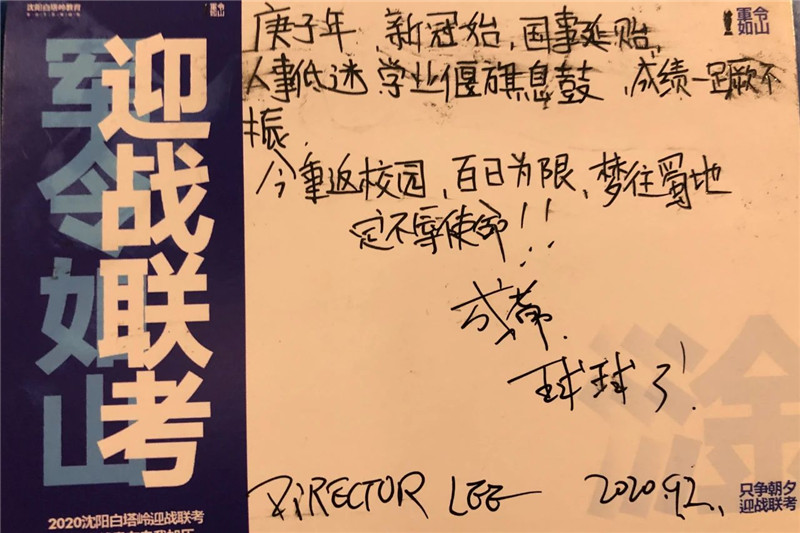 沈阳·白塔岭教育
军令如山
迎战联考
2020沈阳白塔岭迎战联考
重令
如山
庚子年、新冠始,国事延贻,
人事低迷 学业偃旗息鼓,成绩一蹶不
振
今重返校园、百日为限、梦往蜀地
定不辱使命!!
成都.
球球了!
DiRECTOR LEE 2020.9.2.
只争朝夕
迎战联考